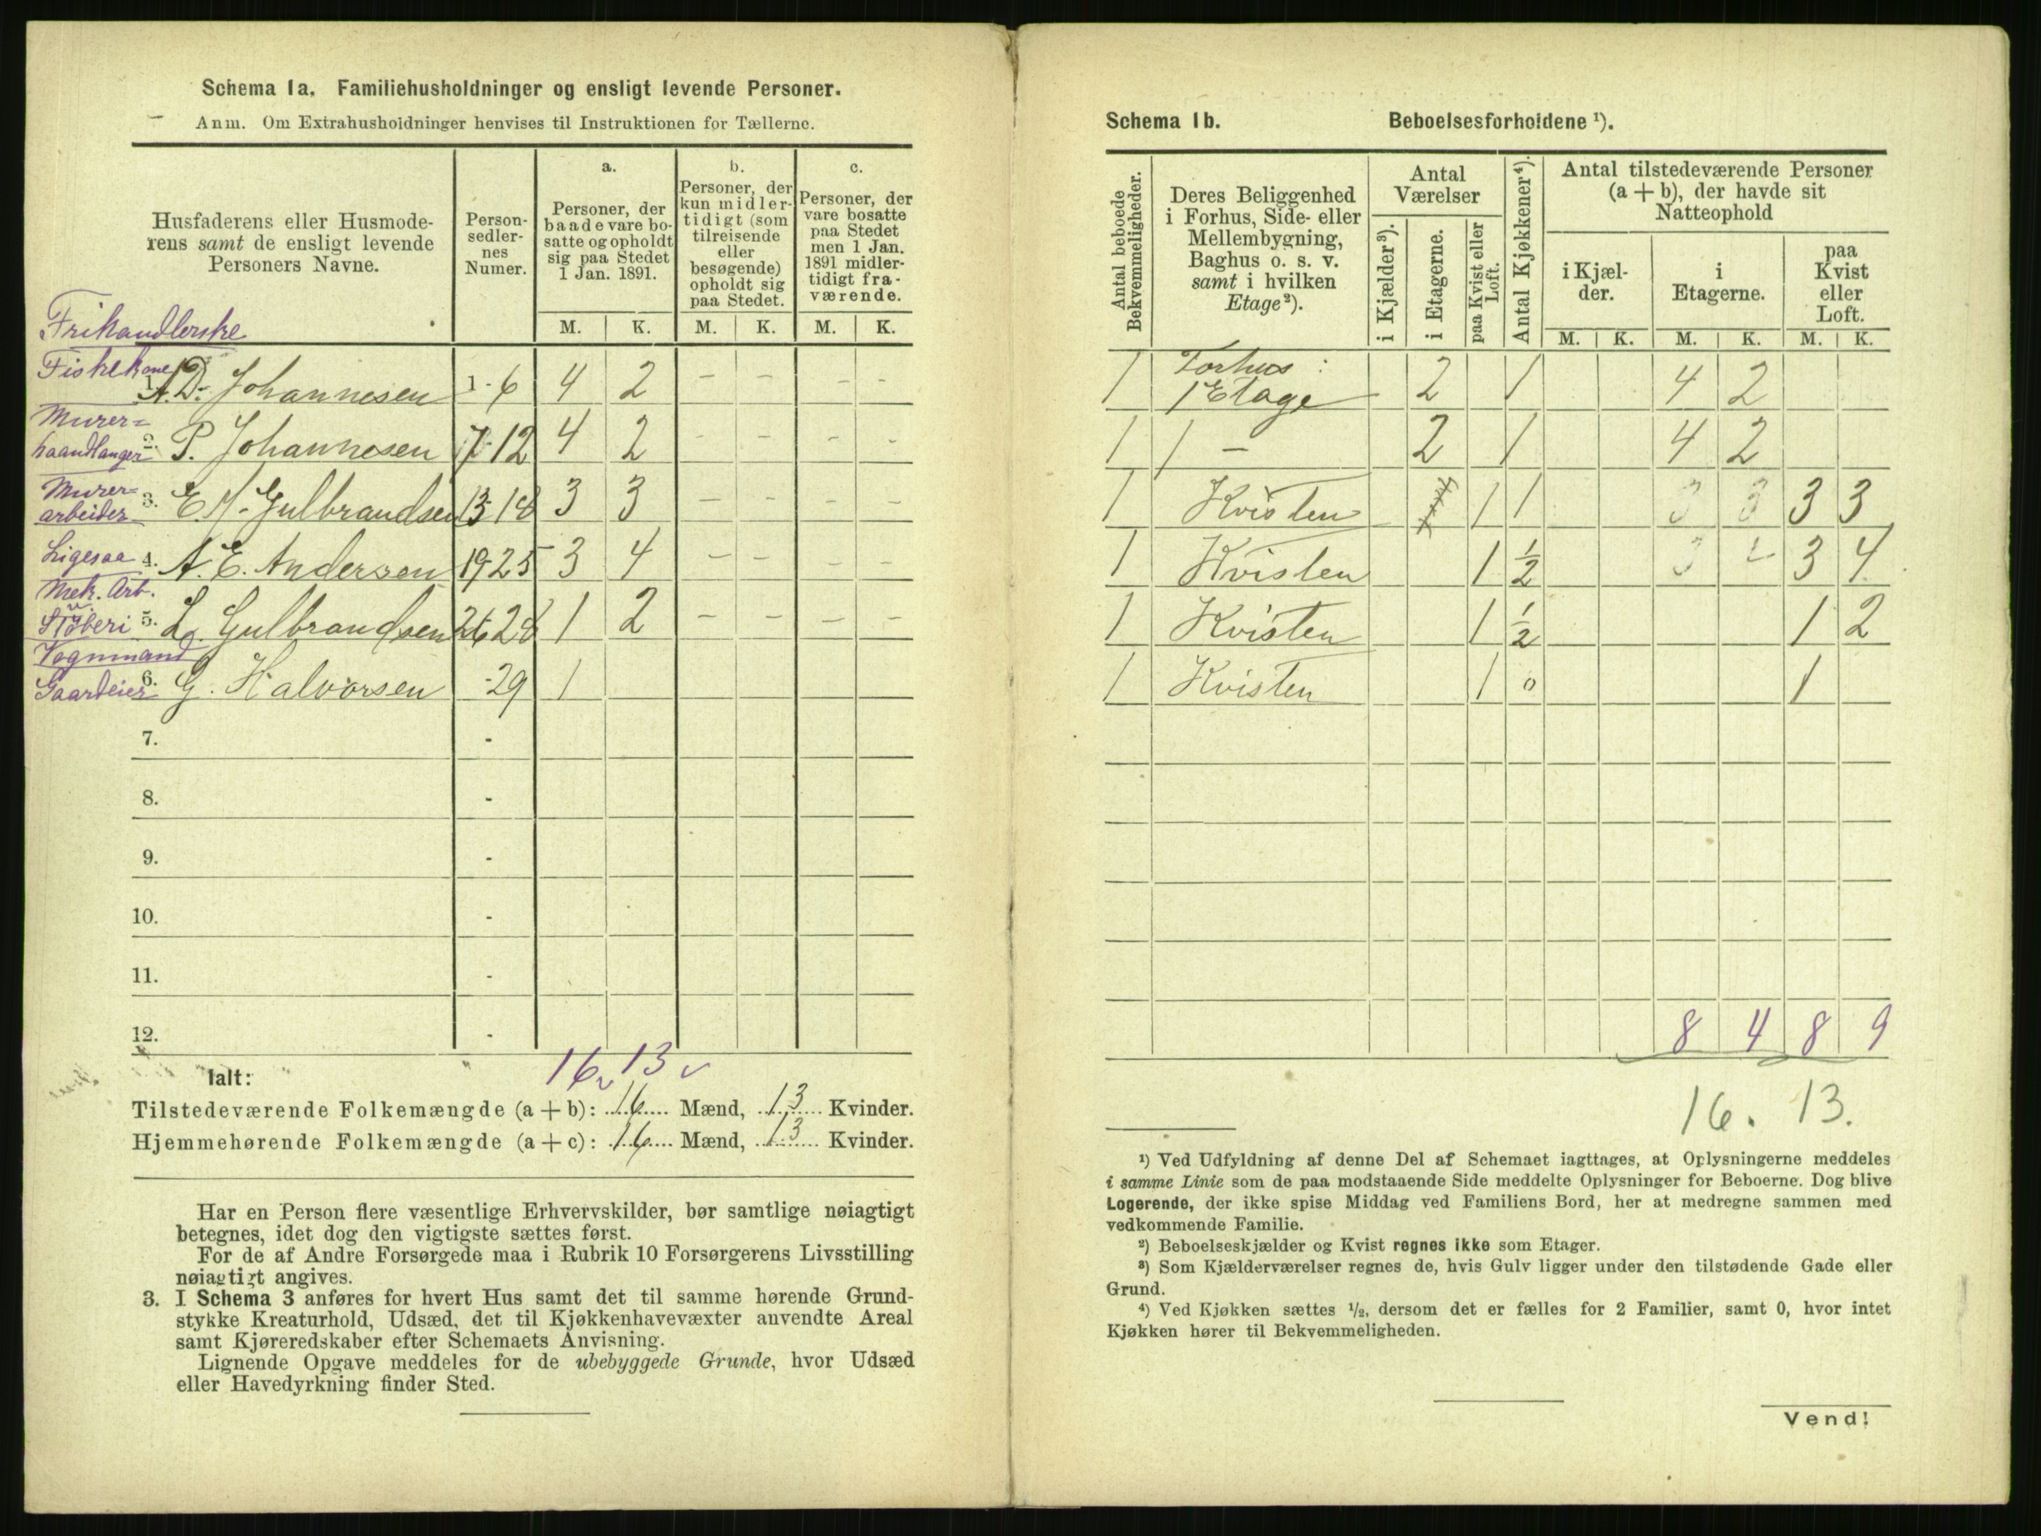 Schema 1a. Familiehusholdninger og ensligt levende Personer.
Anm. Om Extrahusholdninger henvises til Instruktionen for Tællerne.
Husfaderens eller Husmode-
rens samt de ensligt levende
Personers Navne.
Person-
sedler-
nes
Numer.
a.
Personer, der
baade vare bo-
satte og opholdt
sig paa Stedet
1 Jan. 1891.
b.
Personer, der
kun midler-
tidigt (som
tilreisende
eller
besøgende)
opholdt sig
paa Stedet.
c.
Personer, der
vare bosatte
paa Stedet
men 1 Jan.
1891 midler-
tidigt fra-
værende.
M. K. M. K. M. K.
Frihandlerske
Fiskekone
1. A. D. Johannesen 1-6 4 2 – – – –
Murer=
haandlanger 2. P. Johannesen 7-12 4 2 – – – –
Murer=
arbeider 3. E M. Gulbrandsen 13-18 3 3 – – – –
Ligesaa 4. A. E. Andersen 19-25 3 4 – – – –
Mek. Arb.
v.
Støberi 5. L. Gulbrandsen 26-28 1 2 – – – –
Vognmand
Gaardeier 6. G. Halvorsen -29 1
7. -
8. -
9. -
10. -
11. -
12. -
16 v 13 v
Ialt:
Tilstedeværende Folkemængde (a + b): 16 Mænd, 13 Kvinder.
Hjemmehørende Folkemængde (a + c): 16 Mænd, 13 Kvinder.
Har en Person flere væsentlige Erhvervskilder, bør samtlige nøiagtigt
betegnes, idet dog den vigtigste sættes først.
For de af Andre Forsørgede maa i Rubrik 10 Forsørgerens Livsstilling
nøiagtigt angives.
3. I Schema 3 anføres for hvert Hus samt det til samme hørende Grund-
stykke Kreaturhold, Udsæd, det til Kjøkkenhavevæxter anvendte Areal
samt Kjøreredskaber efter Schemaets Anvisning.
Lignende Opgave meddeles for de ubebyggede Grunde, hvor Udsæd
eller Havedyrkning finder Sted.
Schema 1b. Beboelsesforholdene ¹).
Antal beboede
Bekvemmeligheder.
Deres Beliggenhed
i Forhus, Side- eller
Mellembygning,
Baghus o. s. v.
samt i hvilken
Etage²).
Antal
Værelser
i Kjælder³).
i Etagerne.
paa Kvist eller
Loft.
Antal Kjøkkener⁴).
Antal tilstedeværende Personer
(a + b), der havde sit
Natteophold
i Kjæl-
der.
i
Etagerne.
paa
Kvist
eller
Loft.
M. K. M. K. M. K.
1 Forhus :
1 Etage 2 1 4 2
1 1 – 2 1 4 2
1 Kvisten 1 1 3 3 3 3
1 Kvisten 1 ½ 3 4 3 4
1 Kvisten 1 ½ 1 2
1 Kvisten 1 0 1
8 4 8 9
16. 13.
¹) Ved Udfyldning af denne Del af Schemaet iagttages, at Oplysningerne meddeles
i samme Linie som de paa modstaaende Side meddelte Oplysninger for Beboerne. Dog blive
Logerende, der ikke spise Middag ved Familiens Bord, her at medregne sammen med
vedkommende Familie.
²) Beboelseskjælder og Kvist regnes ikke som Etager.
³) Som Kjælderværelser regnes de, hvis Gulv ligger under den tilstødende Gade eller
Grund.
⁴) Ved Kjøkken sættes ½, dersom det er fælles for 2 Familier, samt 0, hvor intet
Kjøkken hører til Bekvemmeligheden.
Vend!